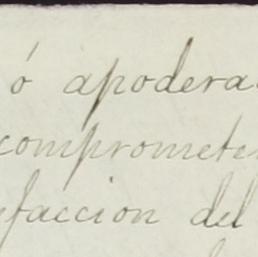 ó apodera
comprometer
efaccion del